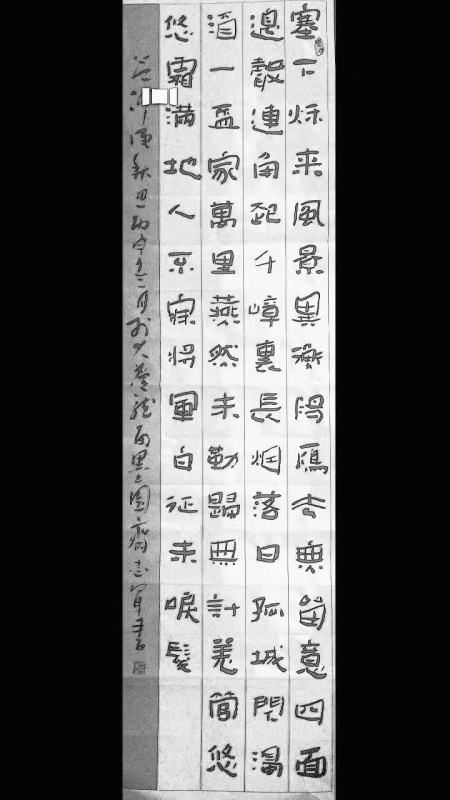 塞下秋来風景異衡陽雁去無留意四面
邊聲連角起千嶂裏長烟落日孤城閉濁
酒一盃家萬里燕然未勒歸無計羌管悠
悠霜滿地人不寐將軍白征未唳髮
秋思 三月於大 書